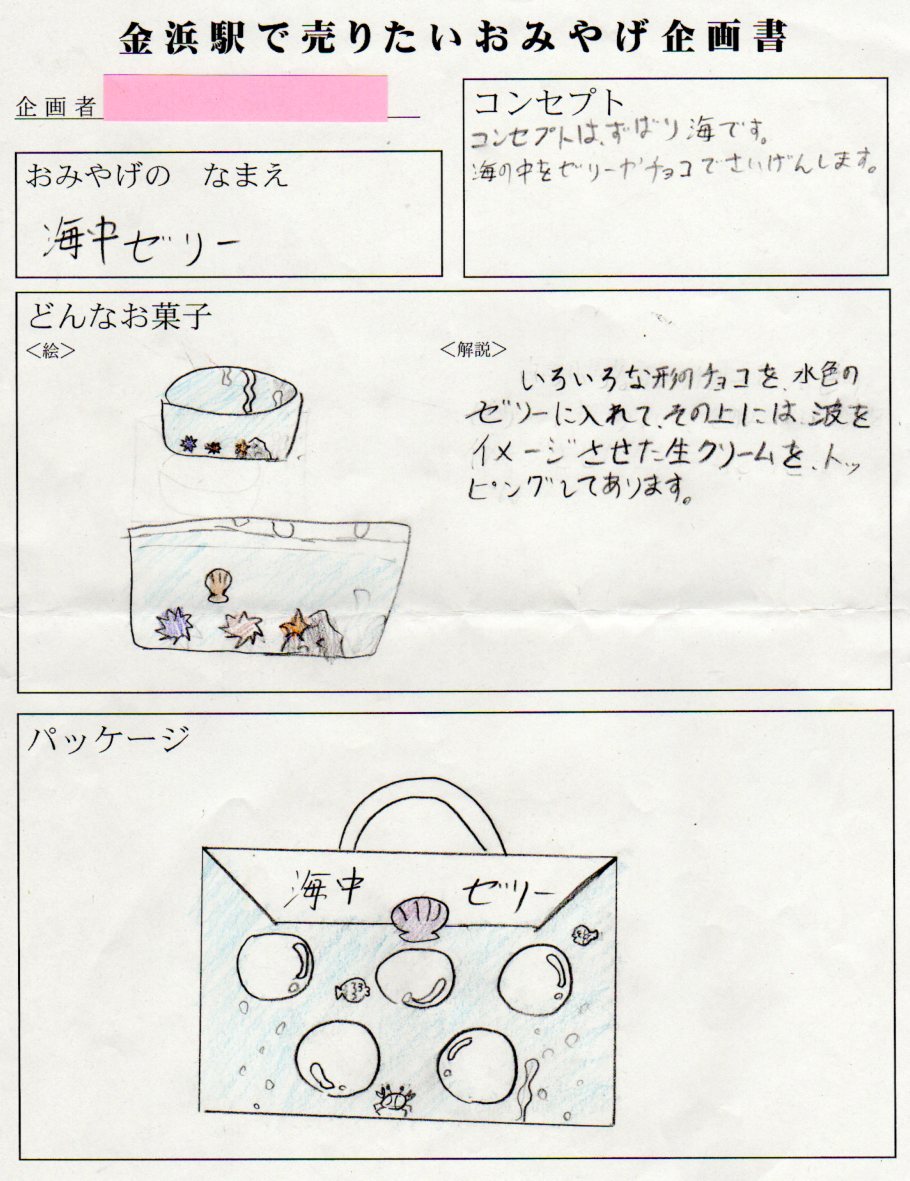 金浜駅で売りたいおみやげ企画書
企画者
コンセプト
コンセプトは、ずばり海です。
海の中をゼリーやチョコでさいげんします。
おみやげの なまえ
海中ゼリー
どんなお菓子
＜絵＞
＜解説＞
いろいろな形のチョコを、水色の
ゼリーに入れて、その上には、波を
イメージさせた生クリームを、トッ
ピングしてあります。
パッケージ
海中 ゼリー